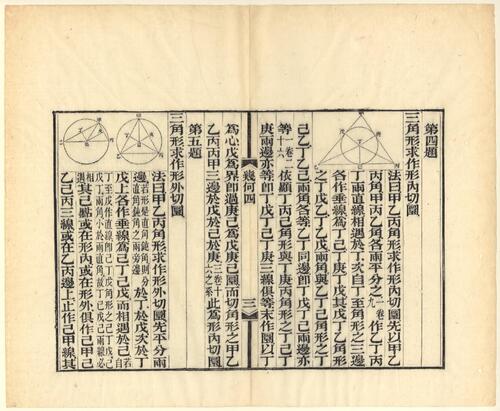 第四題
三角形求作形內切圜
法曰甲乙丙角形求作形內切圜先以甲乙
丙角甲丙乙角各兩平分之一卷九作乙丁丙
丁兩直線相遇於丁次自丁至角形之三邊
各作垂線為丁己丁庚丁戊其戊丁乙角形
之丁戊乙丁乙戊兩角與乙丁己角形之丁
己乙丁乙己兩角各等乙丁同邊即丁戊丁己兩邊亦
等一卷廿六依顯丁丙己角形與丁庚丙角形之丁己丁
庚兩邊亦等即丁戊丁己丁庚三線俱等末作圜以丁
幾何四
三
為心戊為界即過庚己為戊庚己圜而切角形之甲乙
乙丙丙甲三邊於戊於己於庚三卷十六之系此為形內切圜
第五題
三角形求作形外切圜
法曰甲乙丙角形求作形外切圜先平分兩
邊若形是直角鈍角則分直角鈍角之兩旁邊於丁於戊次於丁
戊上各作垂線為己丁己戊而相遇於己自
丁至戊作直線即己丁戊角形之己丁戊己
戊丁兩角小於兩直角故丁己戊己兩線必
相遇其己點或在形內或在形外俱作己甲己
乙己丙三線或在乙丙邊上止作己甲線其